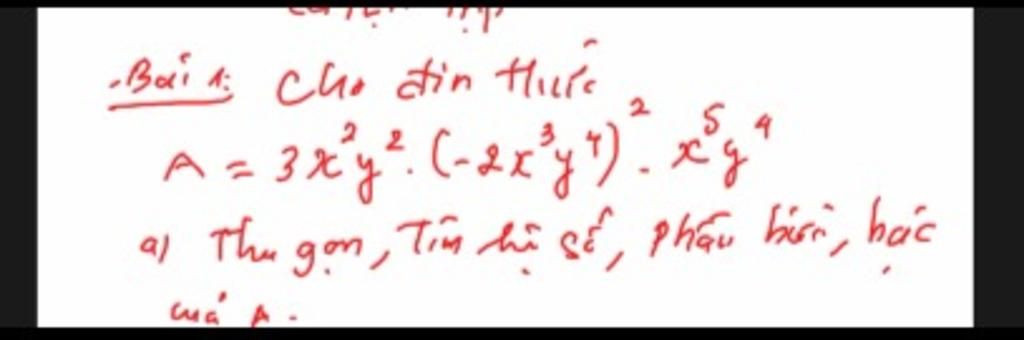 Bài 1: Cho đơn thức
A = 3x²y² . (-2x³y⁴)² . x⁵y⁴
a) Thu gọn, Tìm hệ số, phần biến, bậc
của A.